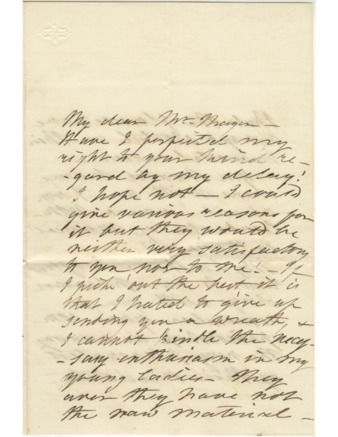 My dear Mr. Mayer -
Have I forfeited my
right to your kind re-
-gard by my delay?
I hope not - I could
give various reasons for
it but they would be
neither very satisfactory
to you nor to me. - If
I pick out the best it is
that I hated to give up
sending you a wreath, &
I cannot kindle the neces-
-sary enthusiasm in my
young ladies - They
aver they have not
the raw material -